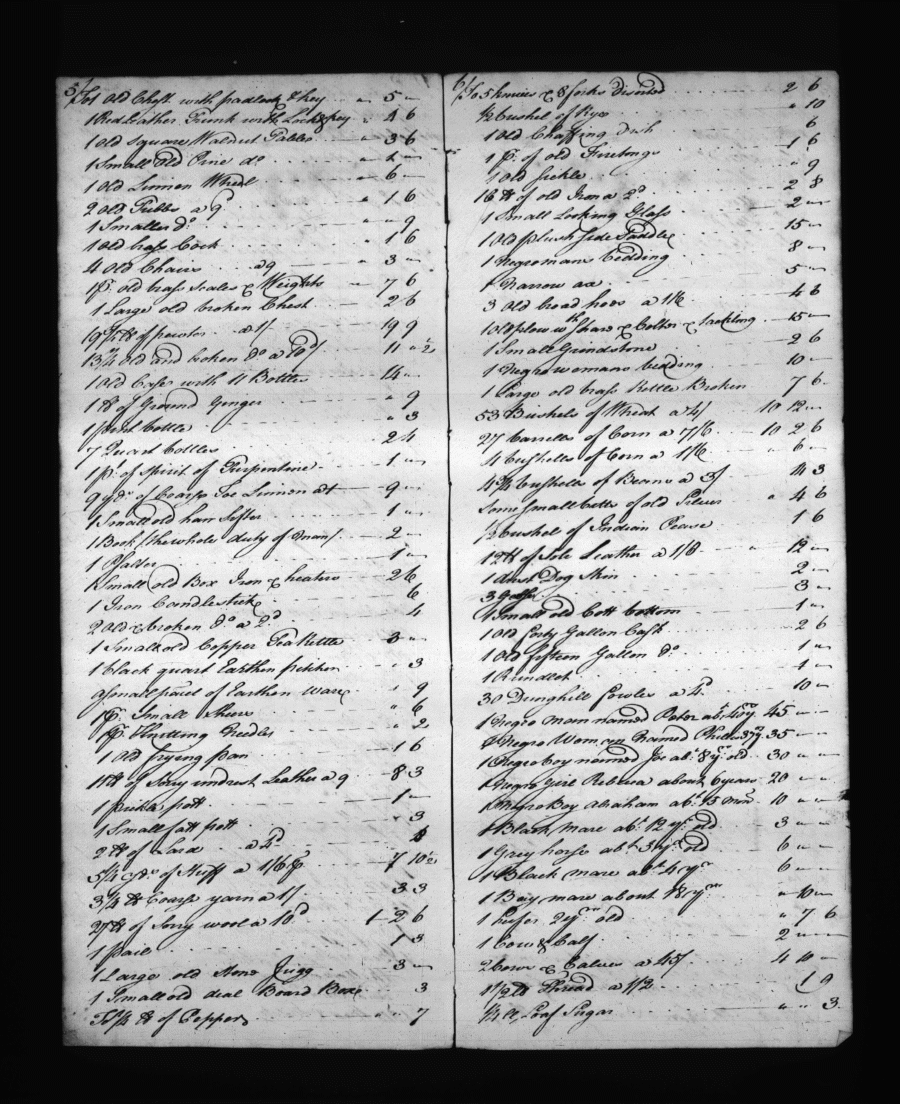 5/
To 1 Old Chest with padlock & key " 5 "
1 Red Leather Trunk with Lock & key " 4 6
1 Old Square Waldnut Table " 3 6
1 Small Old Pine do " "
1 Old Linnen Wheel " 6 "
2 Old Tubbs a 9d " 1 6
1 Smaller do " " 9
1 Old brass Cock " 1 6
4 Old Chairs a 9 " 3 "
1 pr. old brass Scales & Weights " 7 6
1 Large old broken Chest 2 6
19 ¾ lb of pewter a 1/ 19 9
13 ¼ Old and broken do a 10d 11 " ½
1 Old Case with 11 Bottles 14 "
1 lb of Ground Ginger " 9
1 pint bottle " 3
7 Quart bottles 2 4
1 pt. of Spirit of Turpentine 1 "
9 yds. of Coarse Linnen a 1 9 "
1 Small old hair Sifter 1 "
1 Book /the whole duty of man/ 2 "
1 Psalter 1 "
1 Small old Box Iron & heaters 2 6
1 Iron Candlestick 6
2 Old & broken do a 2d 4
1 Small old Copper Tea Kettle 3 "
1 black quart Earthen pitcher " 3
a Small parcel of Earthen Ware " 9
1 pr. Small Sheers " 6
1 pr. Knitting Needles " 2
1 Old frying pan 1 6
11 lb of Sorry undrest Leather a 9 8 3
1 pickle pott 1 "
1 Small fatt pott " 3
2 lb of Lard a 4d 8
5 ¼ yds. of Stuff a 1/6 7 10½
3 ¼ lb Coarse yarn a 1/ 3 3
27 lb of Sorry wool a 10d 1 2 6
1 pail 1 3
1 Large old Stone Jugg 3 "
1 Small old deal Board Box 3
To ¼ lb of Pepper " " 7
6/
To 5 knives & 8 forks 2 6
½ bushel of Rye " 10
1 Old Chaffing Dish 6
1 pr. of old Firetongs 1 6
1 Old Sickle " 9
16 lb of old Iron a 2d 2 8
1 Small Looking Glass 2 "
1 Old plush Side Saddle 15 "
1 Negro mans bedding 8 "
1 Narrow ax 5 "
3 Old broad hoes a 1/6 4 6
1 Old plow wth Share & Colter & tackling 15 "
1 Small Grindstone 2 6
1 Negro womans bedding 10 "
1 Large old brass Kettle Broken 7 6
53 Bushels of Wheat a 4/ 10 12 "
27 barrells of Corn a 7/6 10 2 6
4 bushells of Corn a 1/6 " 6 "
4 ¼ bushells of Beans a 3/ 4 3
Some Small bitts of old Silver " 4 6
½ bushel of Indian Pease 1 6
12 lb of Sole Leather a 1/8 12 "
1 Drest Dog Skin 2 "
3 3 "
1 Small old Cott bottom 1 "
1 Old forty Gallon Cask 2 6
1 Old fifteen Gallon do 1 "
1 Rundlet 1 "
30 Dunghill Fowles a 4d 10 "
1 Negro man named Peter abt 45 " "
1 Negro Woman Named 35 " "
1 Negro boy named Joe abt 8 yrs old 30 " "
1 Negro Girl Rebecca about 6 years 20 " "
1 Negro Boy Abraham abt 15 mons 10 " "
1 Black mare abt 12 yrs old 3 " "
1 Grey horse abt 3 yrs old 6 " "
1 Black mare abt 4 yrs 6 " "
1 Bay mare about 18 yrs " 10 "
1 heifer 2 yrs old " 7 6
1 Cow & Calf 2 " "
2 Cows & Calves a 45/ 4 10 "
1½ lb Thread a 1/2 1 9
¼ lb Loaf Sugar " " 3